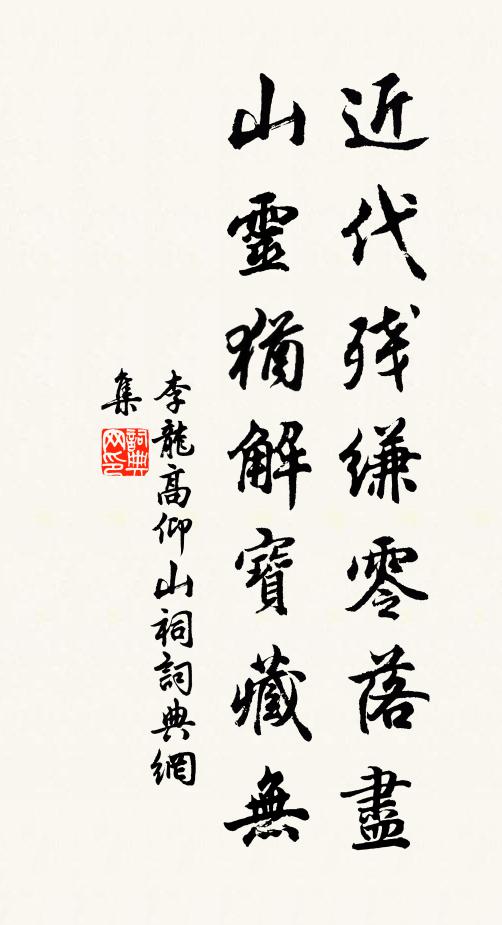 近代残縑零落盡
山靈猶解寶藏無
李龍高仰山祠詞典網
集
詞典
网印